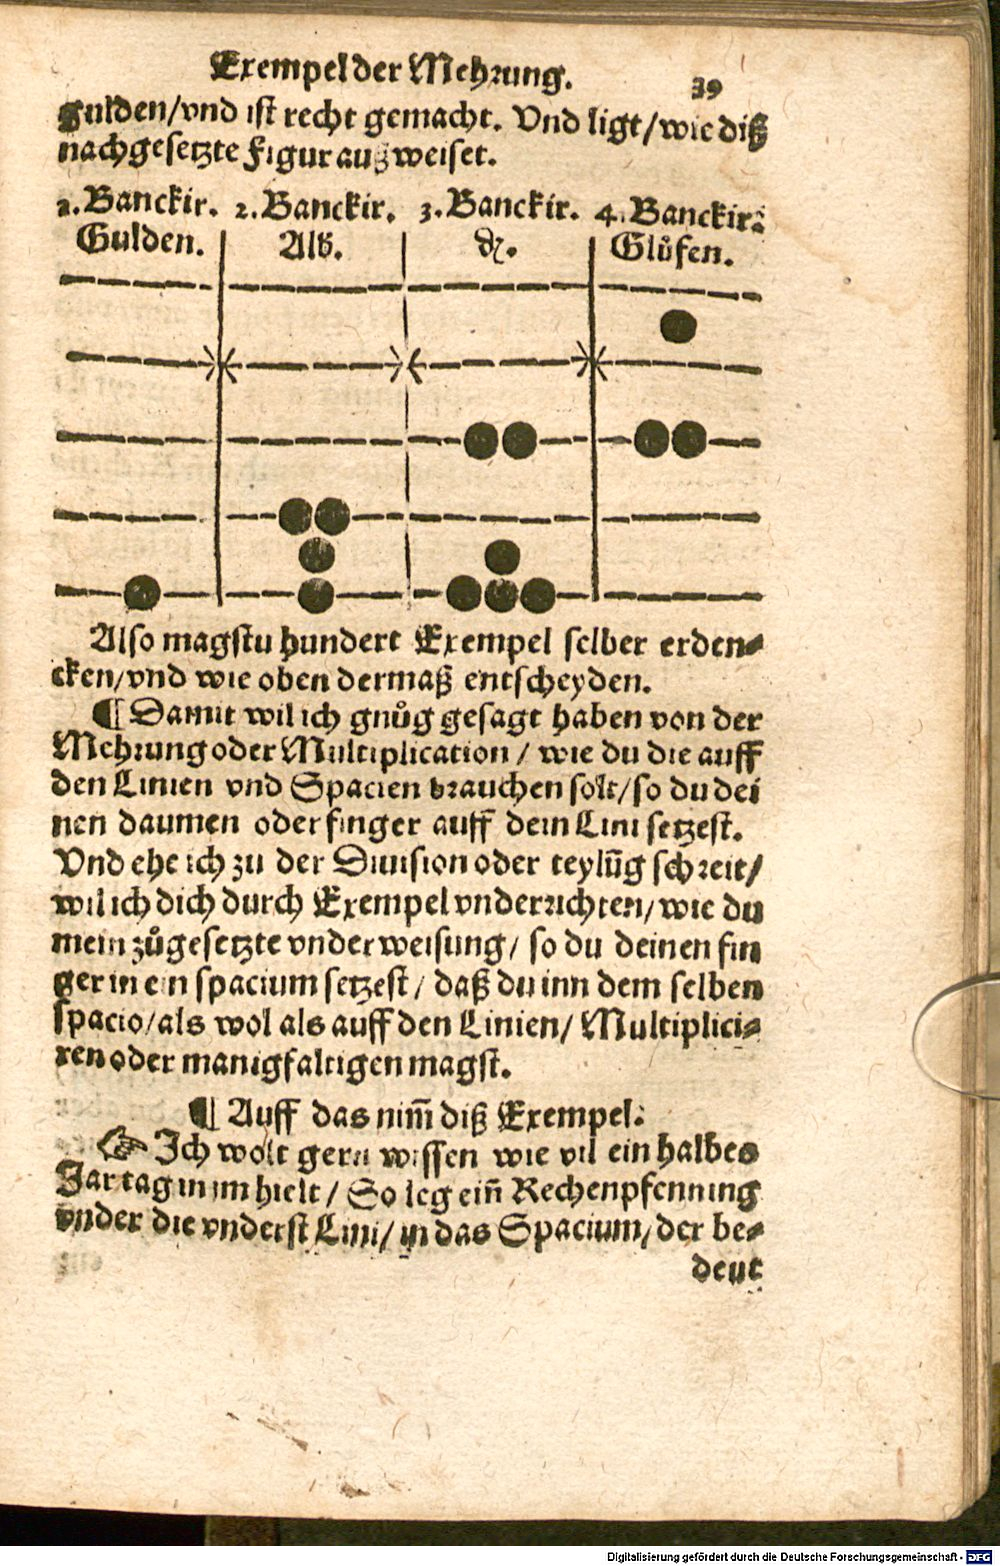 Exempel der Mehrung. 39
gulden/vnd ist recht gemacht. Vnd ligt/wie diß
nachgesetzte Figur außweiset.
1. Banckir. 2. Banckir. 3. Banckir. 4. Banckir:
Gulden. Alb. ₰. Glůfen.
Also magstu hundert Exempel selber erden-
cken/vnd wie oben dermaß entscheyden.
¶ Damit wil ich gnůg gesagt haben von der
Mehrung oder Multiplication / wie du die auff
den Linien vnd Spacien brauchen solt/so du dei
nen daumen oder finger auff dein Lini setzest.
Vnd ehe ich zu der Diuision oder teylūg schreit/
wil ich dich durch Exempel vnderrichten/wie du
mein zůgesetzte vnderweisung/ so du deinen fin
ger in ein spacium setzest / daß du inn dem selben
spacio/als wol als auff den Linien/ Multiplici-
ren oder manigfaltigen magst.
¶ Auff das nim̄ diß Exempel:
☞ Ich wolt gern wissen wie vil ein halbes
Jar tag in im hielt / So leg ein̄ Rechenpfenning
vnder die vnderst Lini/ in das Spacium/der be-
deut
Digitalisierung gefördert durch die Deutsche Forschungsgemeinschaft - DFG